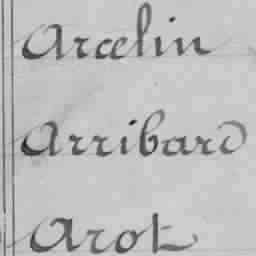 Arcelin
Arribard
Arot